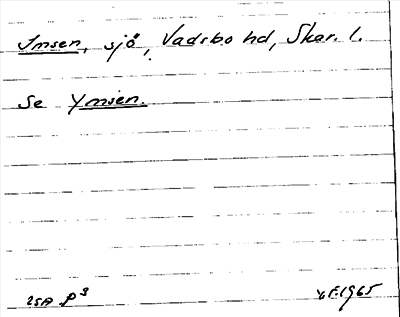 Imsen, sjö, Vadsbo hd, Skar. l.
Se Ymsen.
25A P3
VF1965